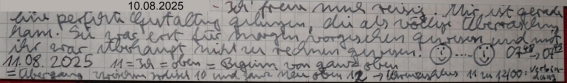 10.08.2025 - Ich freu mich riesig. Mir ist gerade
eine perfekte Gestaltung gelungen, die als völlige Überraschung
kam. Sie war erst für morgen vorgesehen gewesen und mit
ihr war überhaupt nicht zu rechnen gewesen.
11.08.2025 11 = Ich = oben = Beginn von ganz oben
= Übergang zwischen 10 und ganz neu oben 12 → 11 zu 12:00: